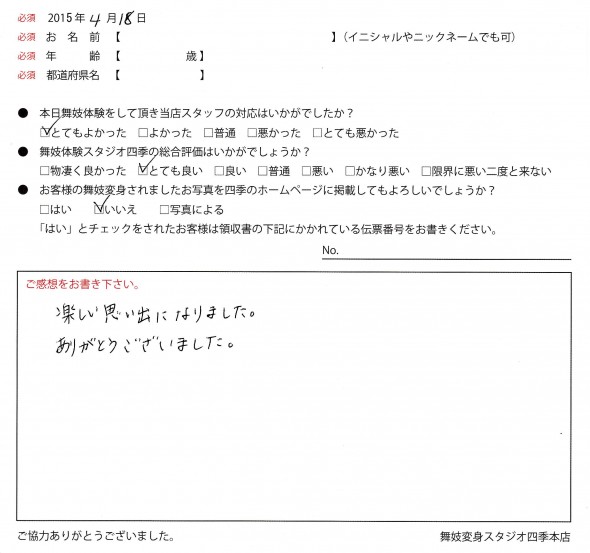 必須 2015年4月18日
必須 お名前【 】(イニシャルやニックネームでも可)
必須 年齢【 歳】
必須 都道府県名【 】
● 本日舞妓体験をして頂き当店スタッフの対応はいかがでしたか?
☑とてもよかった □よかった □普通 □悪かった □とても悪かった
● 舞妓体験スタジオ四季の総合評価はいかがでしょうか?
□物凄く良かった ☑とても良い □良い □普通 □悪い □かなり悪い □限界に悪い二度と来ない
● お客様の舞妓変身されましたお写真を四季のホームページに掲載してもよろしいでしょうか?
□はい ☑いいえ □写真による
「はい」とチェックをされたお客様は領収書の下記にかかれている伝票番号をお書きください。
No.
ご感想をお書き下さい。
楽しい思い出になりました。
ありがとうございました。
ご協力ありがとうございました。 舞妓変身スタジオ四季本店